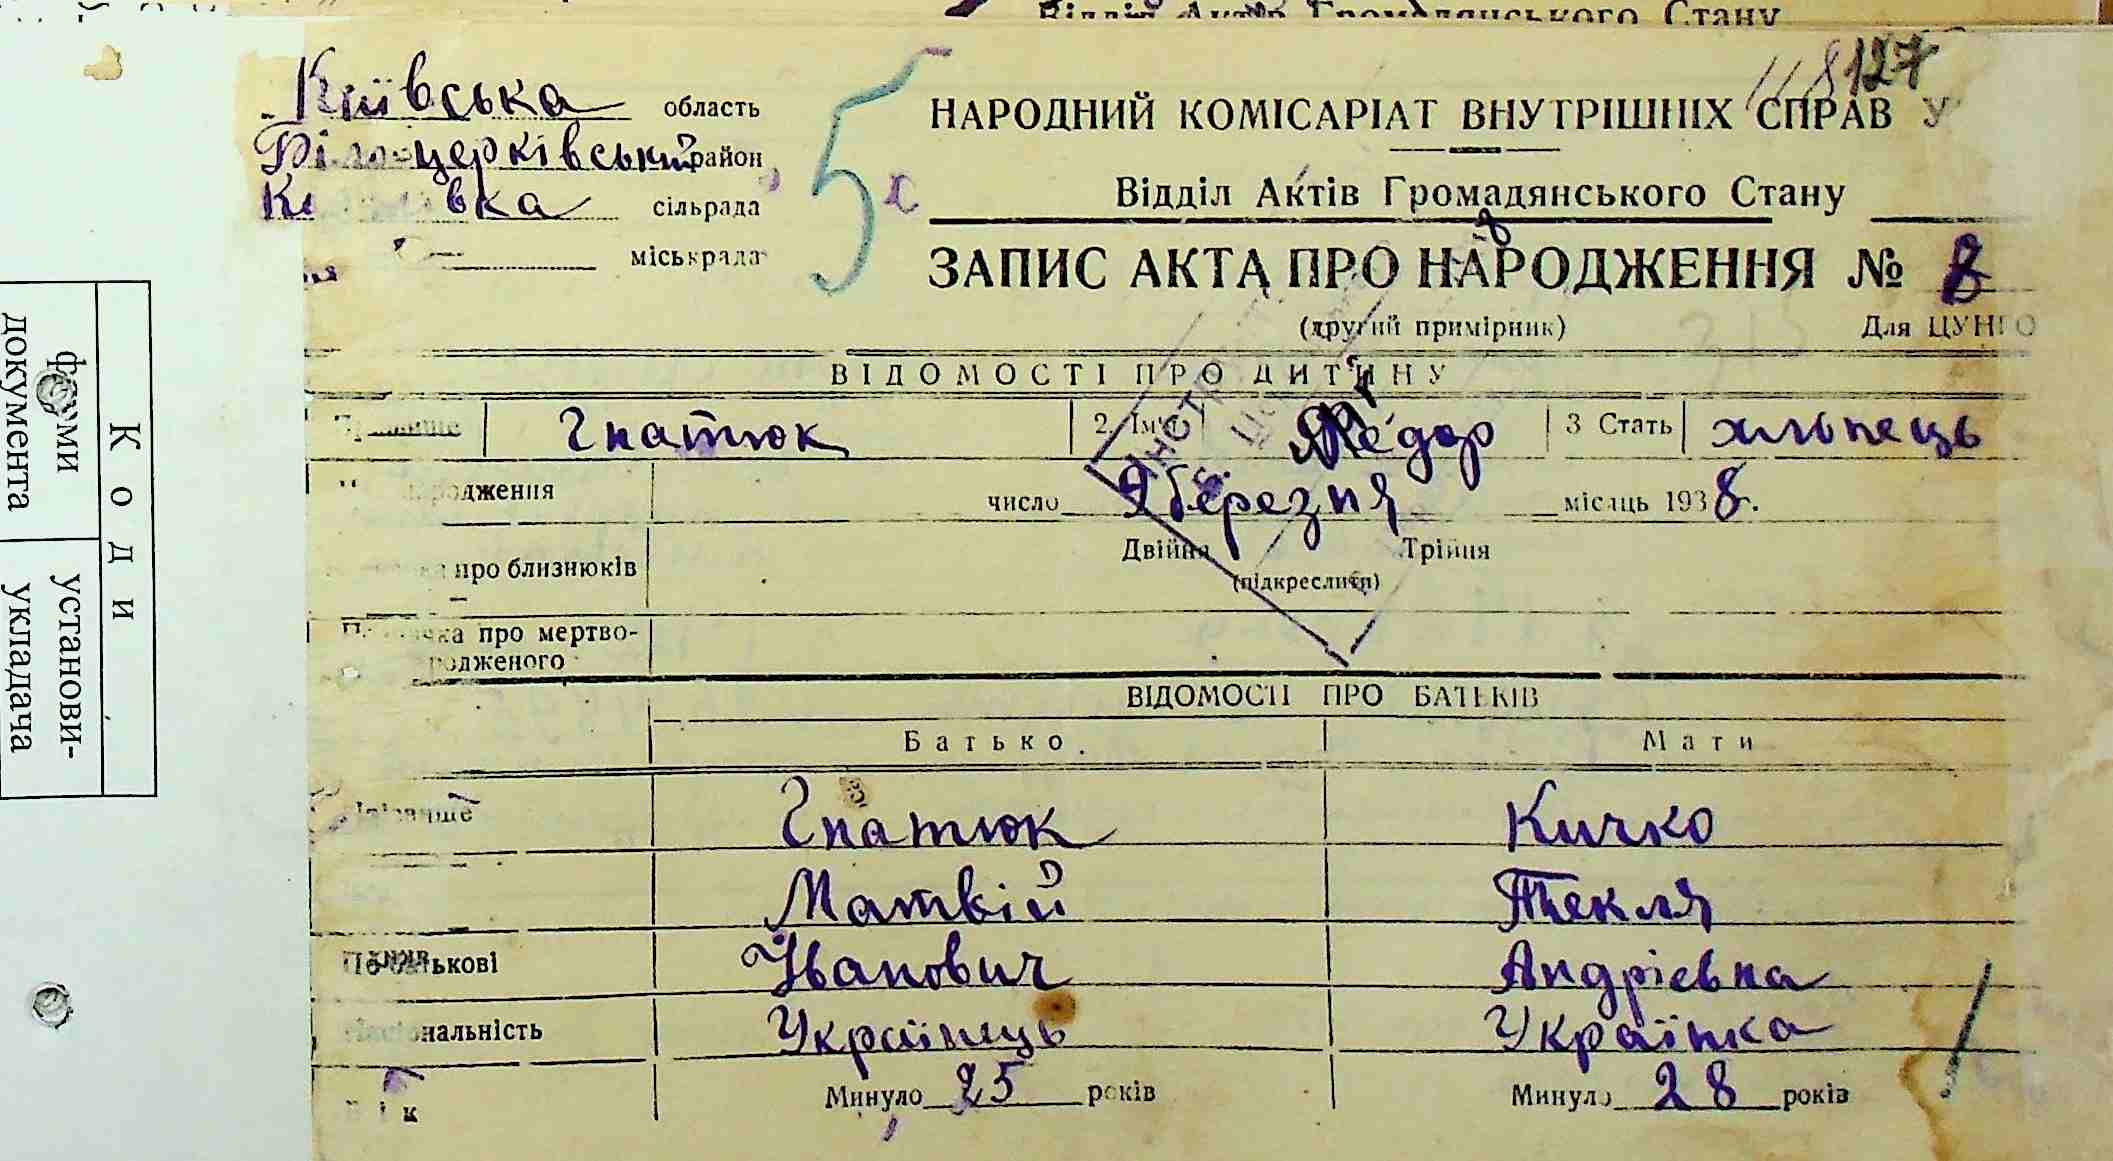 Відділ Актів Громадянського Стану
127
Київська область
Білоцерківський район
сільрада
міськрада
5
НАРОДНИЙ КОМІСАРІАТ ВНУТРІШНІХ СПРАВ У
Відділ Актів Громадянського Стану
ЗАПИС АКТА ПРО НАРОДЖЕННЯ № 8
(другий примірник) Для ЦУНГО
ВІДОМОСТІ ПРО ДИТИНУ
Прізвище Гнатюк 2. Ім'я Федор 3 Стать хлопець
народження число 9 березня місяць 1938.
про близнюків Двійня Трійня
(підкреслити)
про мертво-
родженого
ВІДОМОСТІ ПРО БАТЬКІВ
Батько Мати
Прізвище Гнатюк Кичко
Матвій Текля
По батькові Іванович Андрієвна
Національність Українець Українка
Вік Минуло 25 років Минуло 28 років
Коди
форми документа
установи-укладача